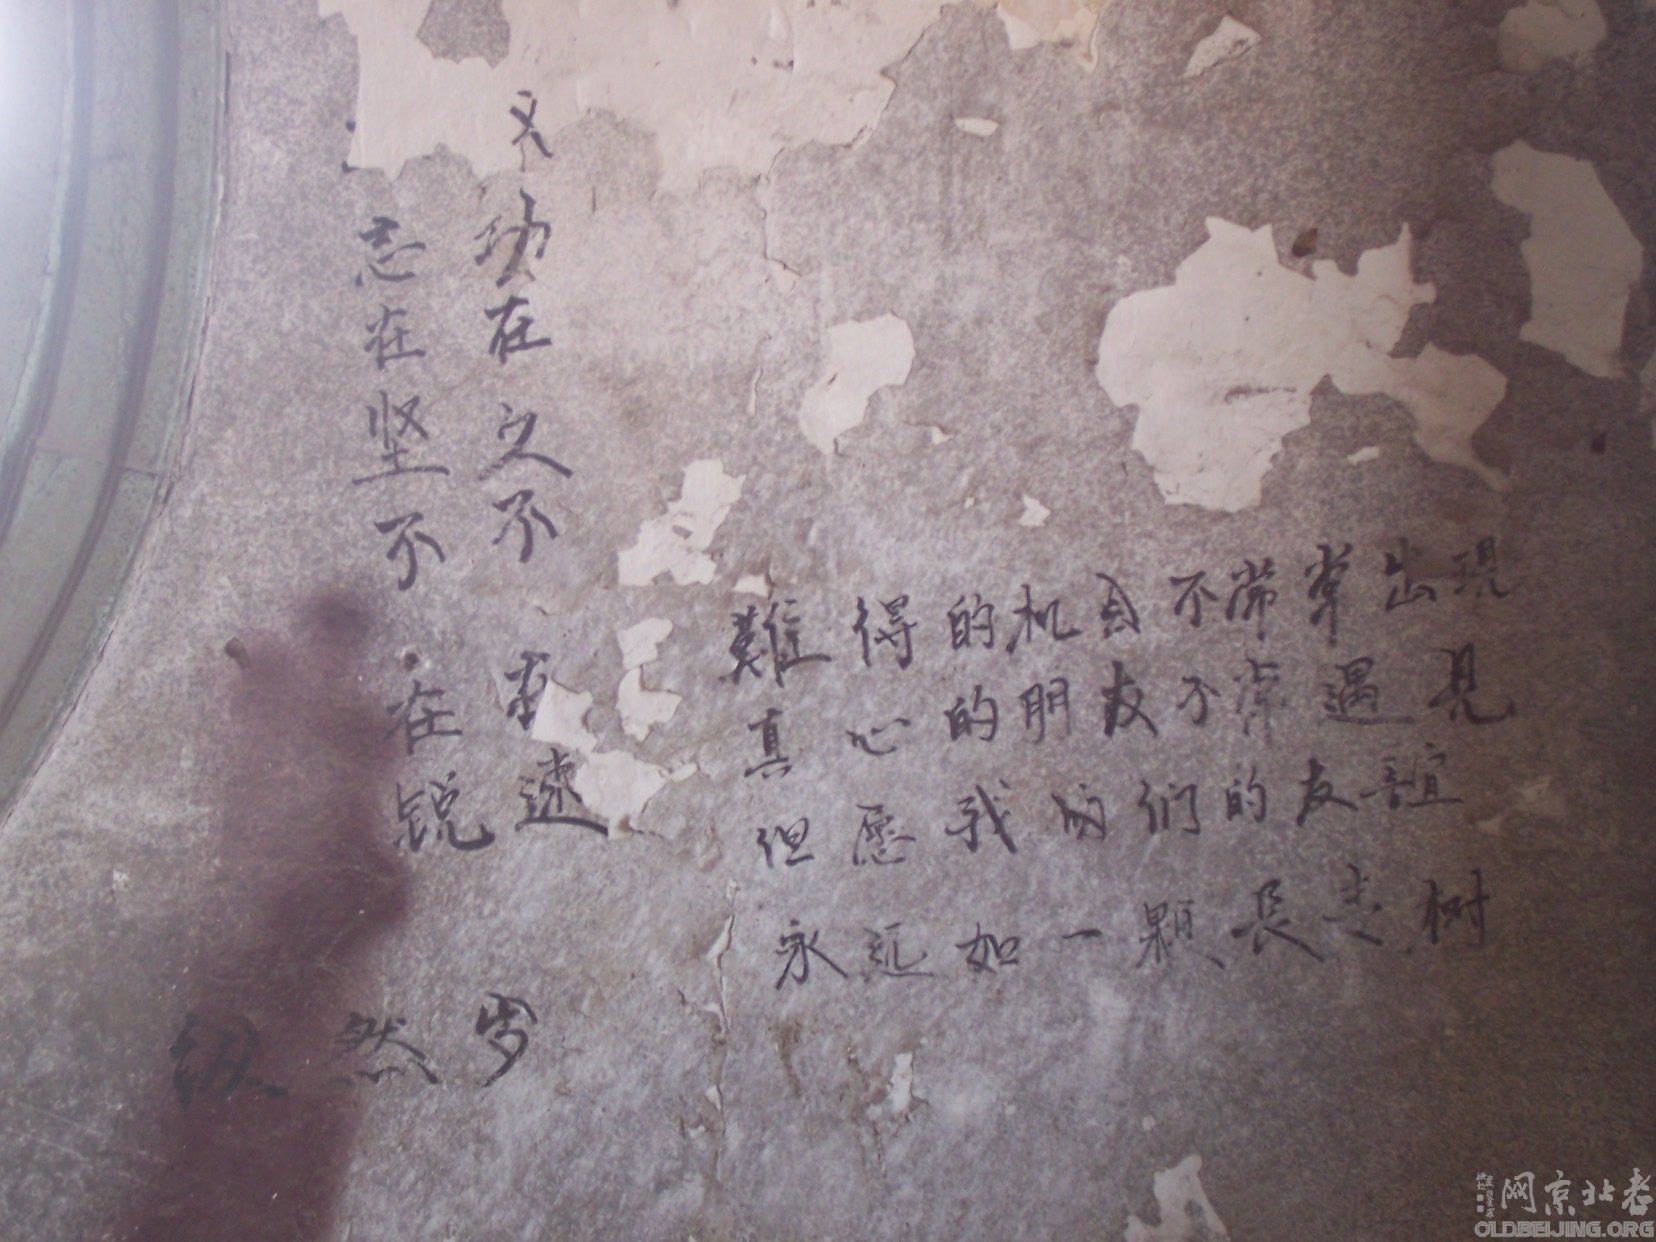 功在久不速
志在坚不在锐
然
難得的机不常常出現
真心的朋友不常遇見
但愿我的们的友誼
永远如一颗長树
老北京网
OLDBEIJING.ORG